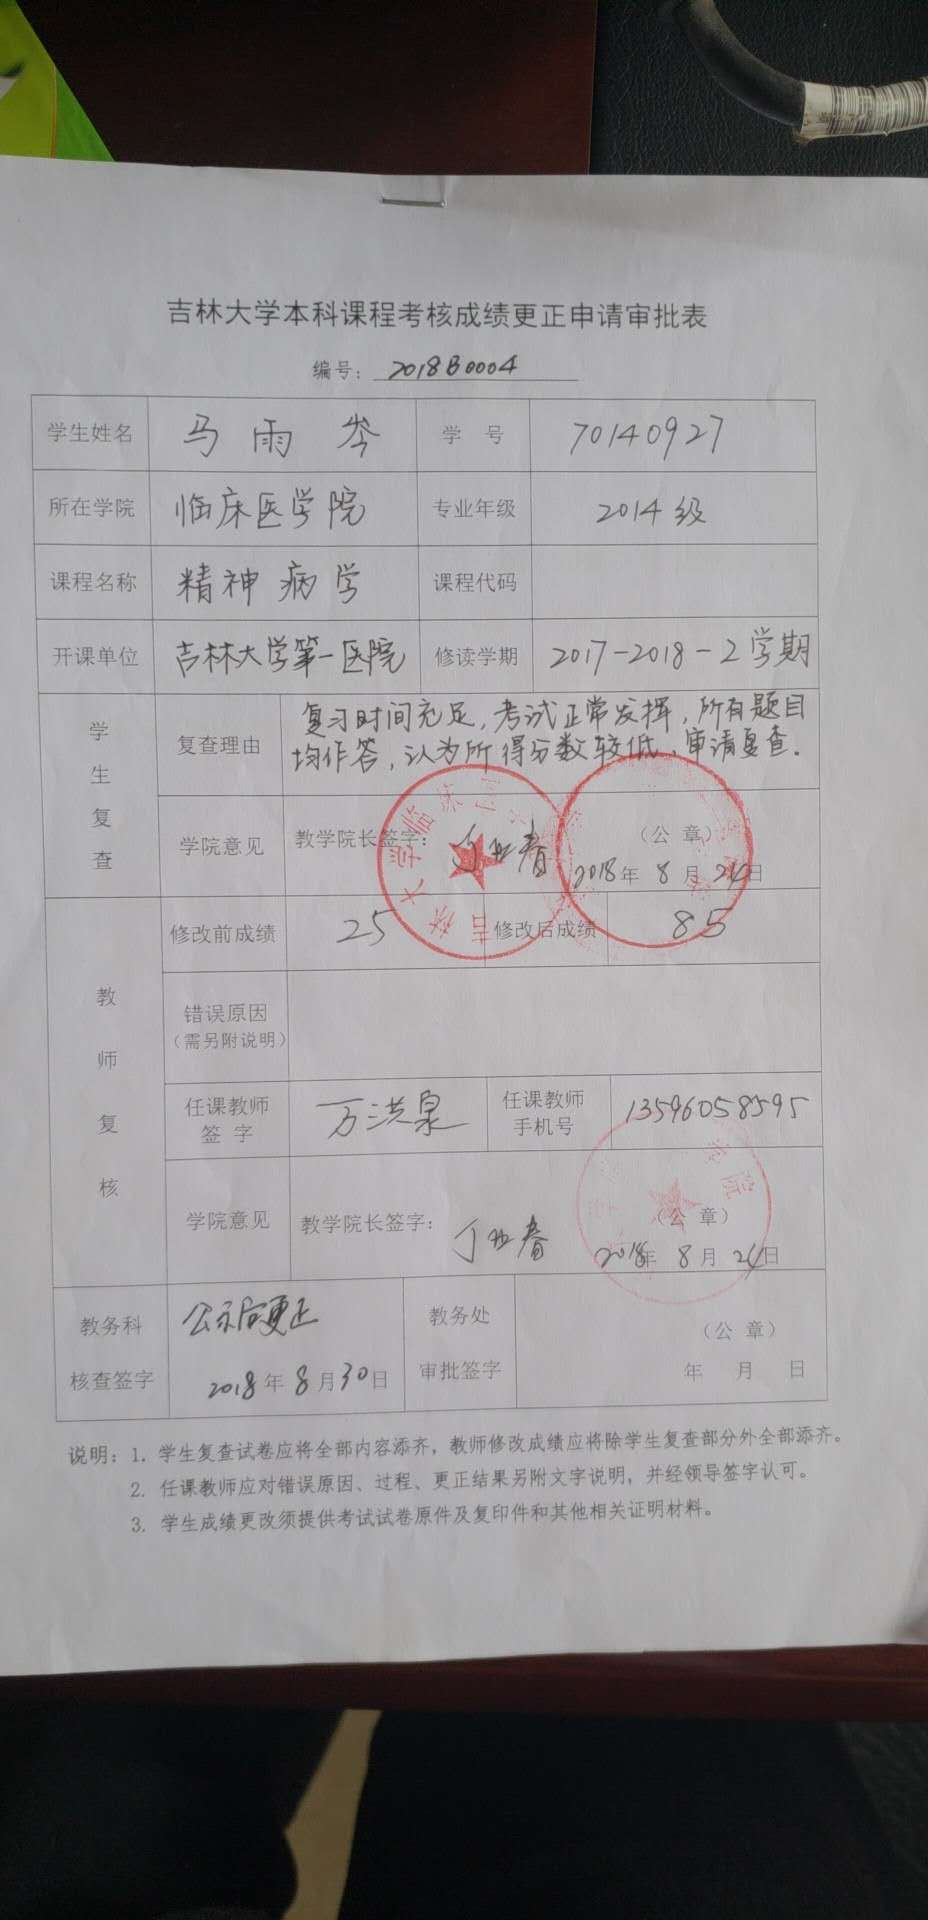 吉林大学本科课程考核成绩更正申请审批表
编号：2018B0004
学生姓名 马雨岑 学号 70140927
所在学院 临床医学院 专业年级 2014级
课程名称 精神病学 课程代码
开课单位 吉林大学第一医院 修读学期 2017-2018-2学期
学生复查
复查理由 复习时间充足,考试正常发挥,所有题目
均作答,认为所得分数较低,申请复查.
学院意见 教学院长签字： （公 章）
2018年 8月 24日
教师复核
修改前成绩 25 修改后成绩 85
错误原因
（需另附说明）
任课教师 签字 万洪泉 任课教师 手机号 13596058595
学院意见 教学院长签字： （公 章）
2018年 8月 24日
教务科 公示后更正 教务处 （公 章）
核查签字 2018年8月30日 审批签字 年 月 日
说明：1. 学生复查试卷应将全部内容添齐，教师修改成绩应将除学生复查部分外全部添齐。
2. 任课教师应对错误原因、过程、更正结果另附文字说明，并经领导签字认可。
3. 学生成绩更改须提供考试试卷原件及复印件和其他相关证明材料。